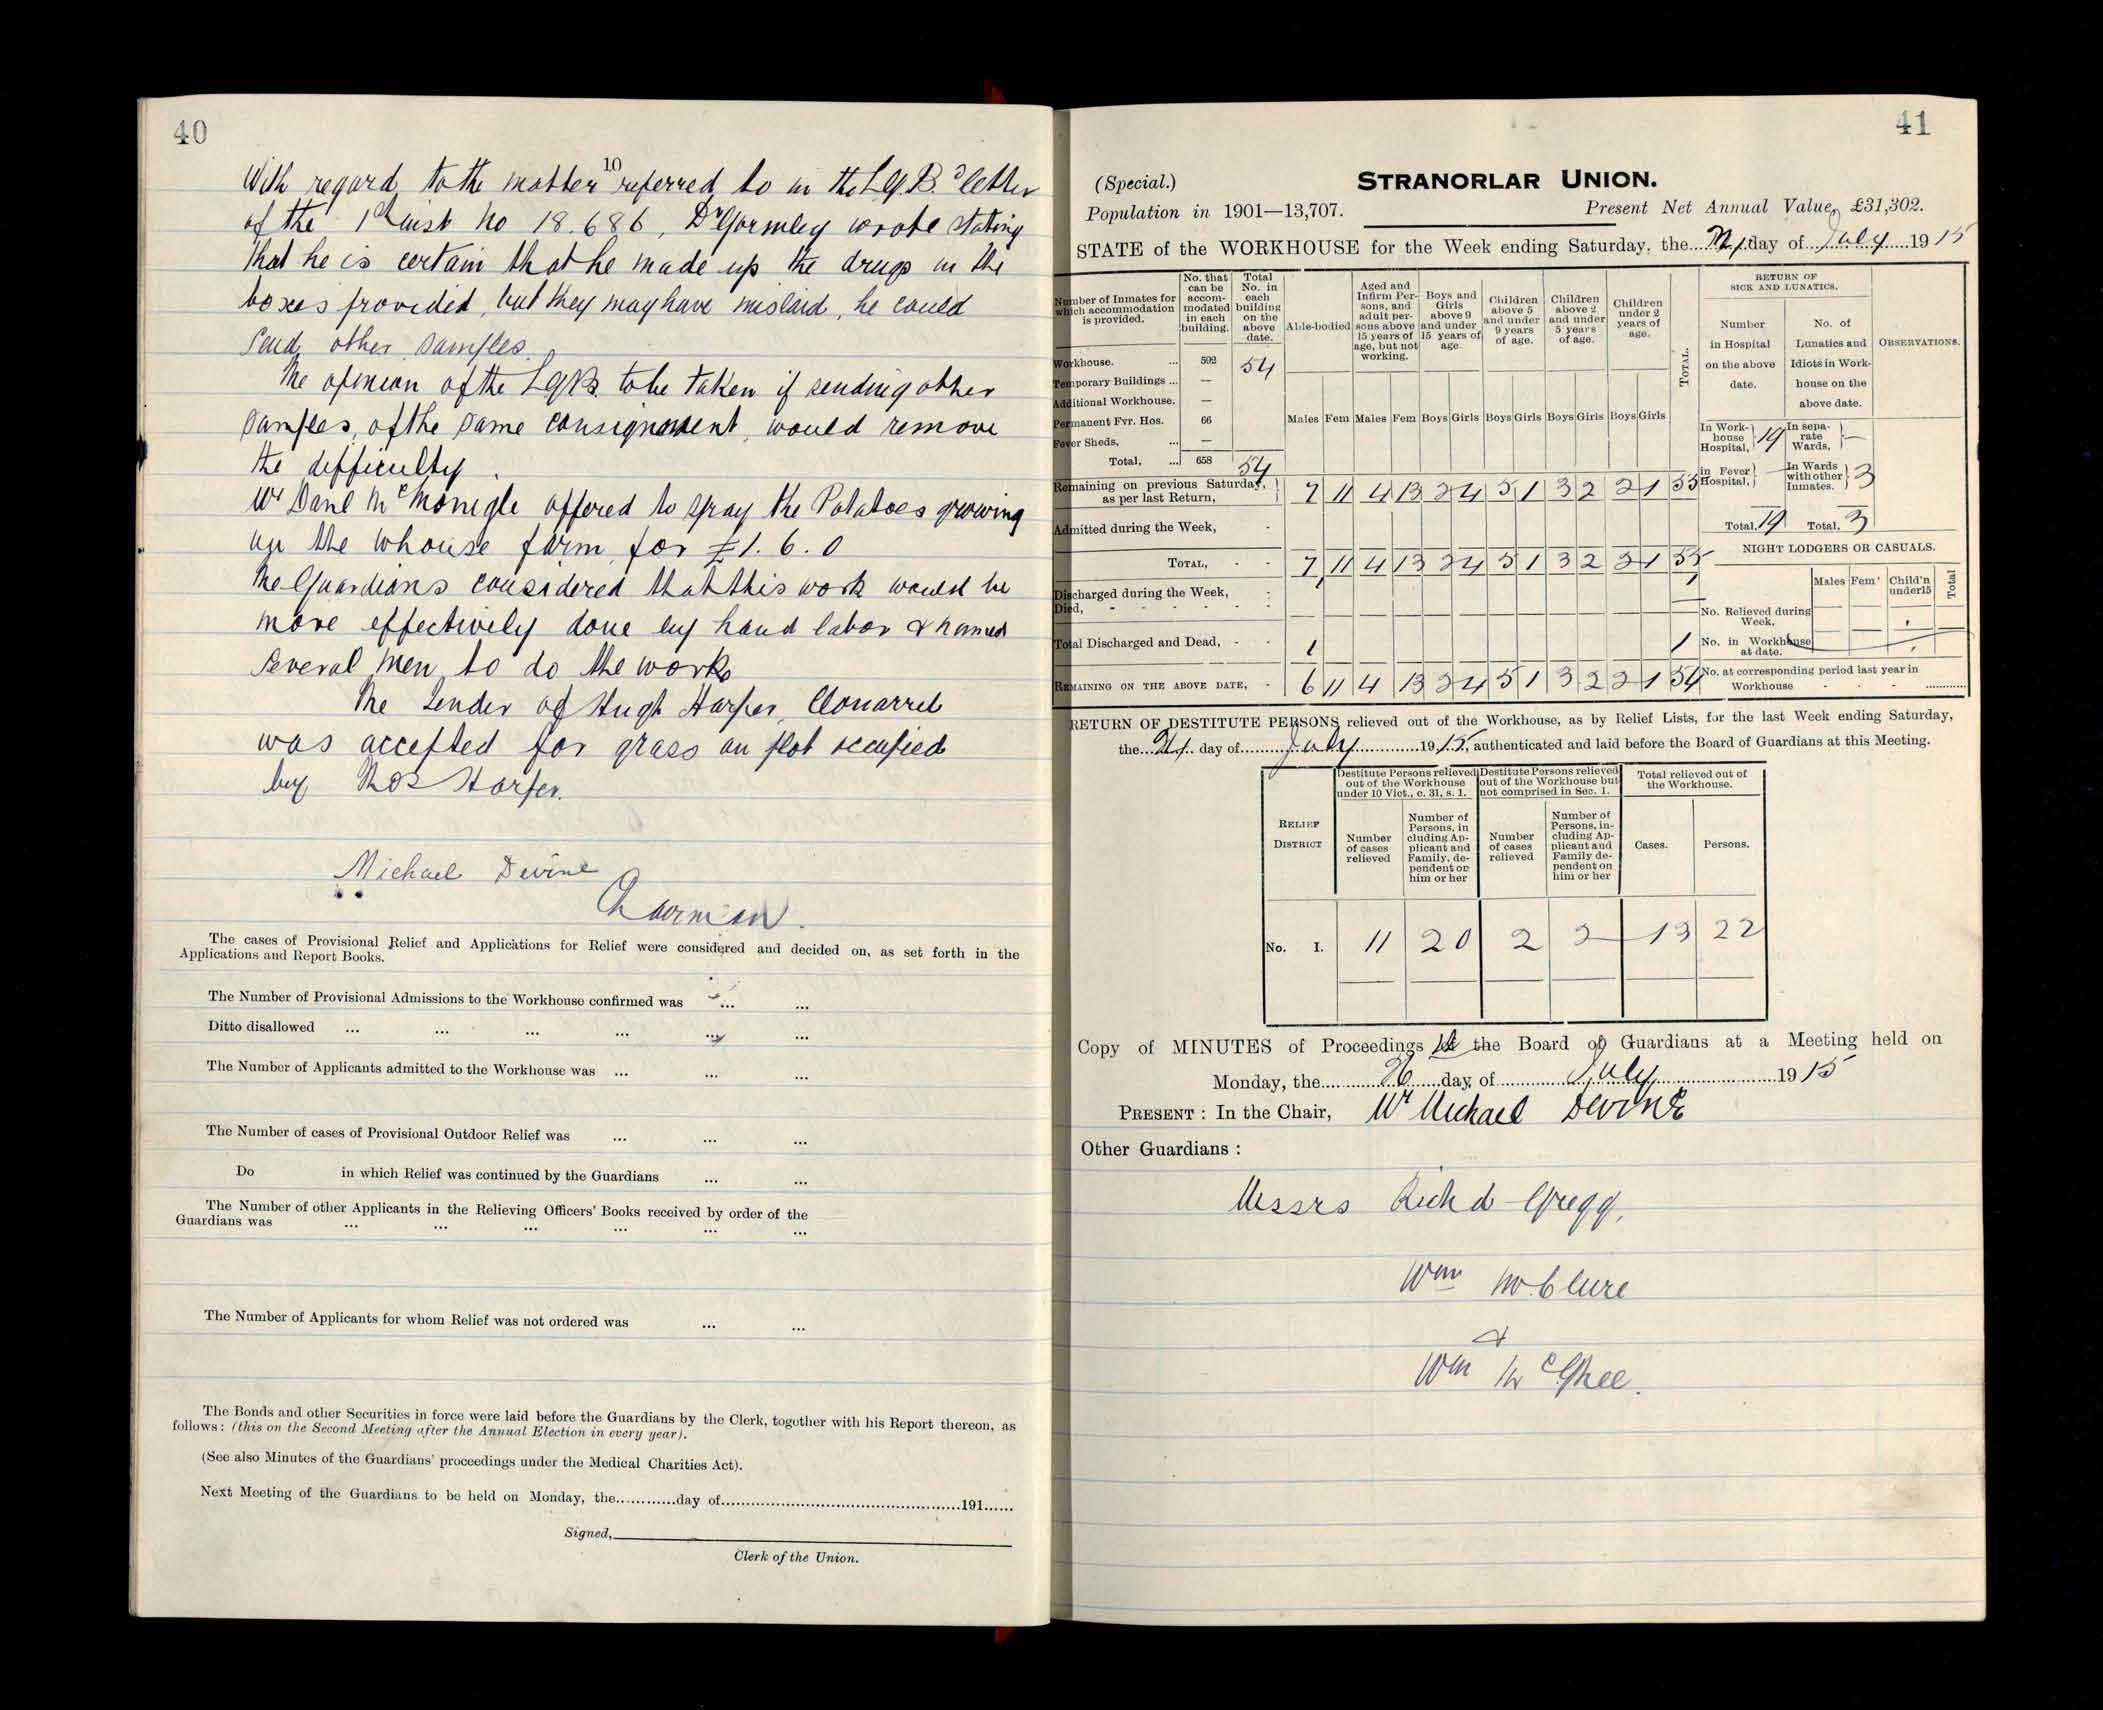 40
10
With regard to the matter referred to in the L.G.B.s letter
of the 1st inst No 18.686, Dr Gormley wrote stating
that he is certain that he made up the drugs in the
boxes provided, but they may have mislaid, he could
send other samples.
The opinion of the LGB. to be taken if sending other
samples, of the same consignment, would remove
the difficulty.
Mr Danl McMonigle offered to spray the Potatoes growing
on the Whouse farm for £1. 6. 0
The Guardians considered that this work would be
more effectively done by hand labor & named
several men to do the work
The tender of Hugh Harper, Clonarrel
was accepted for grass on plot occupied
by Thos Harper.
Michael Devine
Chairman.
The cases of Provisional Relief and Applications for Relief were considered and decided on, as set forth in the
Applications and Report Books.
The Number of Provisional Admissions to the Workhouse confirmed was ... ...
Ditto disallowed ... ... ... ... ... ...
The Number of Applicants admitted to the Workhouse was ... ... ...
The Number of cases of Provisional Outdoor Relief was ... ... ...
Do in which Relief was continued by the Guardians ... ...
The Number of other Applicants in the Relieving Officers' Books received by order of the
Guardians was ... ... ... ... ... ...
The Number of Applicants for whom Relief was not ordered was ... ...
The Bonds and other Securities in force were laid before the Guardians by the Clerk, together with his Report thereon, as
follows: (this on the Second Meeting after the Annual Election in every year).
(See also Minutes of the Guardians' proceedings under the Medical Charities Act).
Next Meeting of the Guardians to be held on Monday, the............day of..............................191......
Signed,
Clerk of the Union.
41
(Special.) STRANORLAR UNION.
Population in 1901—13,707. Present Net Annual Value, £31,302.
STATE of the WORKHOUSE for the Week ending Saturday, the day of July 1915
Number of Inmates for which accommodation is provided.
No. that can be accommodated in each building.
Total No. in each building on the above date.
Able-bodied
Aged and Infirm Persons, and adult persons above 15 years of age, but not working.
Boys and Girls above 9 and under 15 years of age.
Children above 5 and under 9 years of age.
Children above 2 and under 5 years of age.
Children under 2 years of age.
TOTAL.
RETURN OF SICK AND LUNATICS.
Number in Hospital on the above date.
No. of Lunatics and Idiots in Workhouse on the above date.
OBSERVATIONS.
Workhouse. ... 592 54
Temporary Buildings ... —
Additional Workhouse. —
Permanent Fvr. Hos. 66
Fever Sheds, ... —
Total, ... 658 54
Males Fem Males Fem Boys Girls Boys Girls Boys Girls Boys Girls
In Workhouse Hospital, 19 In separate Wards, —
in Fever Hospital, — In Wards with other Inmates. 3
Total. 19 Total. 3
Remaining on previous Saturday, as per last Return, 7 11 4 13 2 4 5 1 3 2 2 1 55
Admitted during the Week, -
TOTAL, - - 7 11 4 13 2 4 5 1 3 2 2 1 55
Discharged during the Week, - 1 1
Died, - - - - - -
Total Discharged and Dead, - - 1 1
REMAINING ON THE ABOVE DATE, - 6 11 4 13 2 4 5 1 3 2 2 1 54
NIGHT LODGERS OR CASUALS.
Males Fem' Child'n under15 Total
No. Relieved during Week,
No. in Workhouse at date.
No. at corresponding period last year in Workhouse - - -
RETURN OF DESTITUTE PERSONS relieved out of the Workhouse, as by Relief Lists, for the last Week ending Saturday,
the day of July 1915, authenticated and laid before the Board of Guardians at this Meeting.
RELIEF DISTRICT
Destitute Persons relieved out of the Workhouse under 10 Vict., c. 31, s. 1.
Destitute Persons relieved out of the Workhouse but not comprised in Sec. 1.
Total relieved out of the Workhouse.
Number of cases relieved
Number of Persons, including Applicant and Family, dependent on him or her
Number of cases relieved
Number of Persons, including Applicant and Family dependent on him or her
Cases. Persons.
No. I. 11 20 2 2 13 22
Copy of MINUTES of Proceedings the Board of Guardians at a Meeting held on
Monday, the 26 day of July 1915
PRESENT: In the Chair, Mr Michael Devine
Other Guardians:
Messrs Richd Gregg,
Wm McClure
&
Wm McGhee.